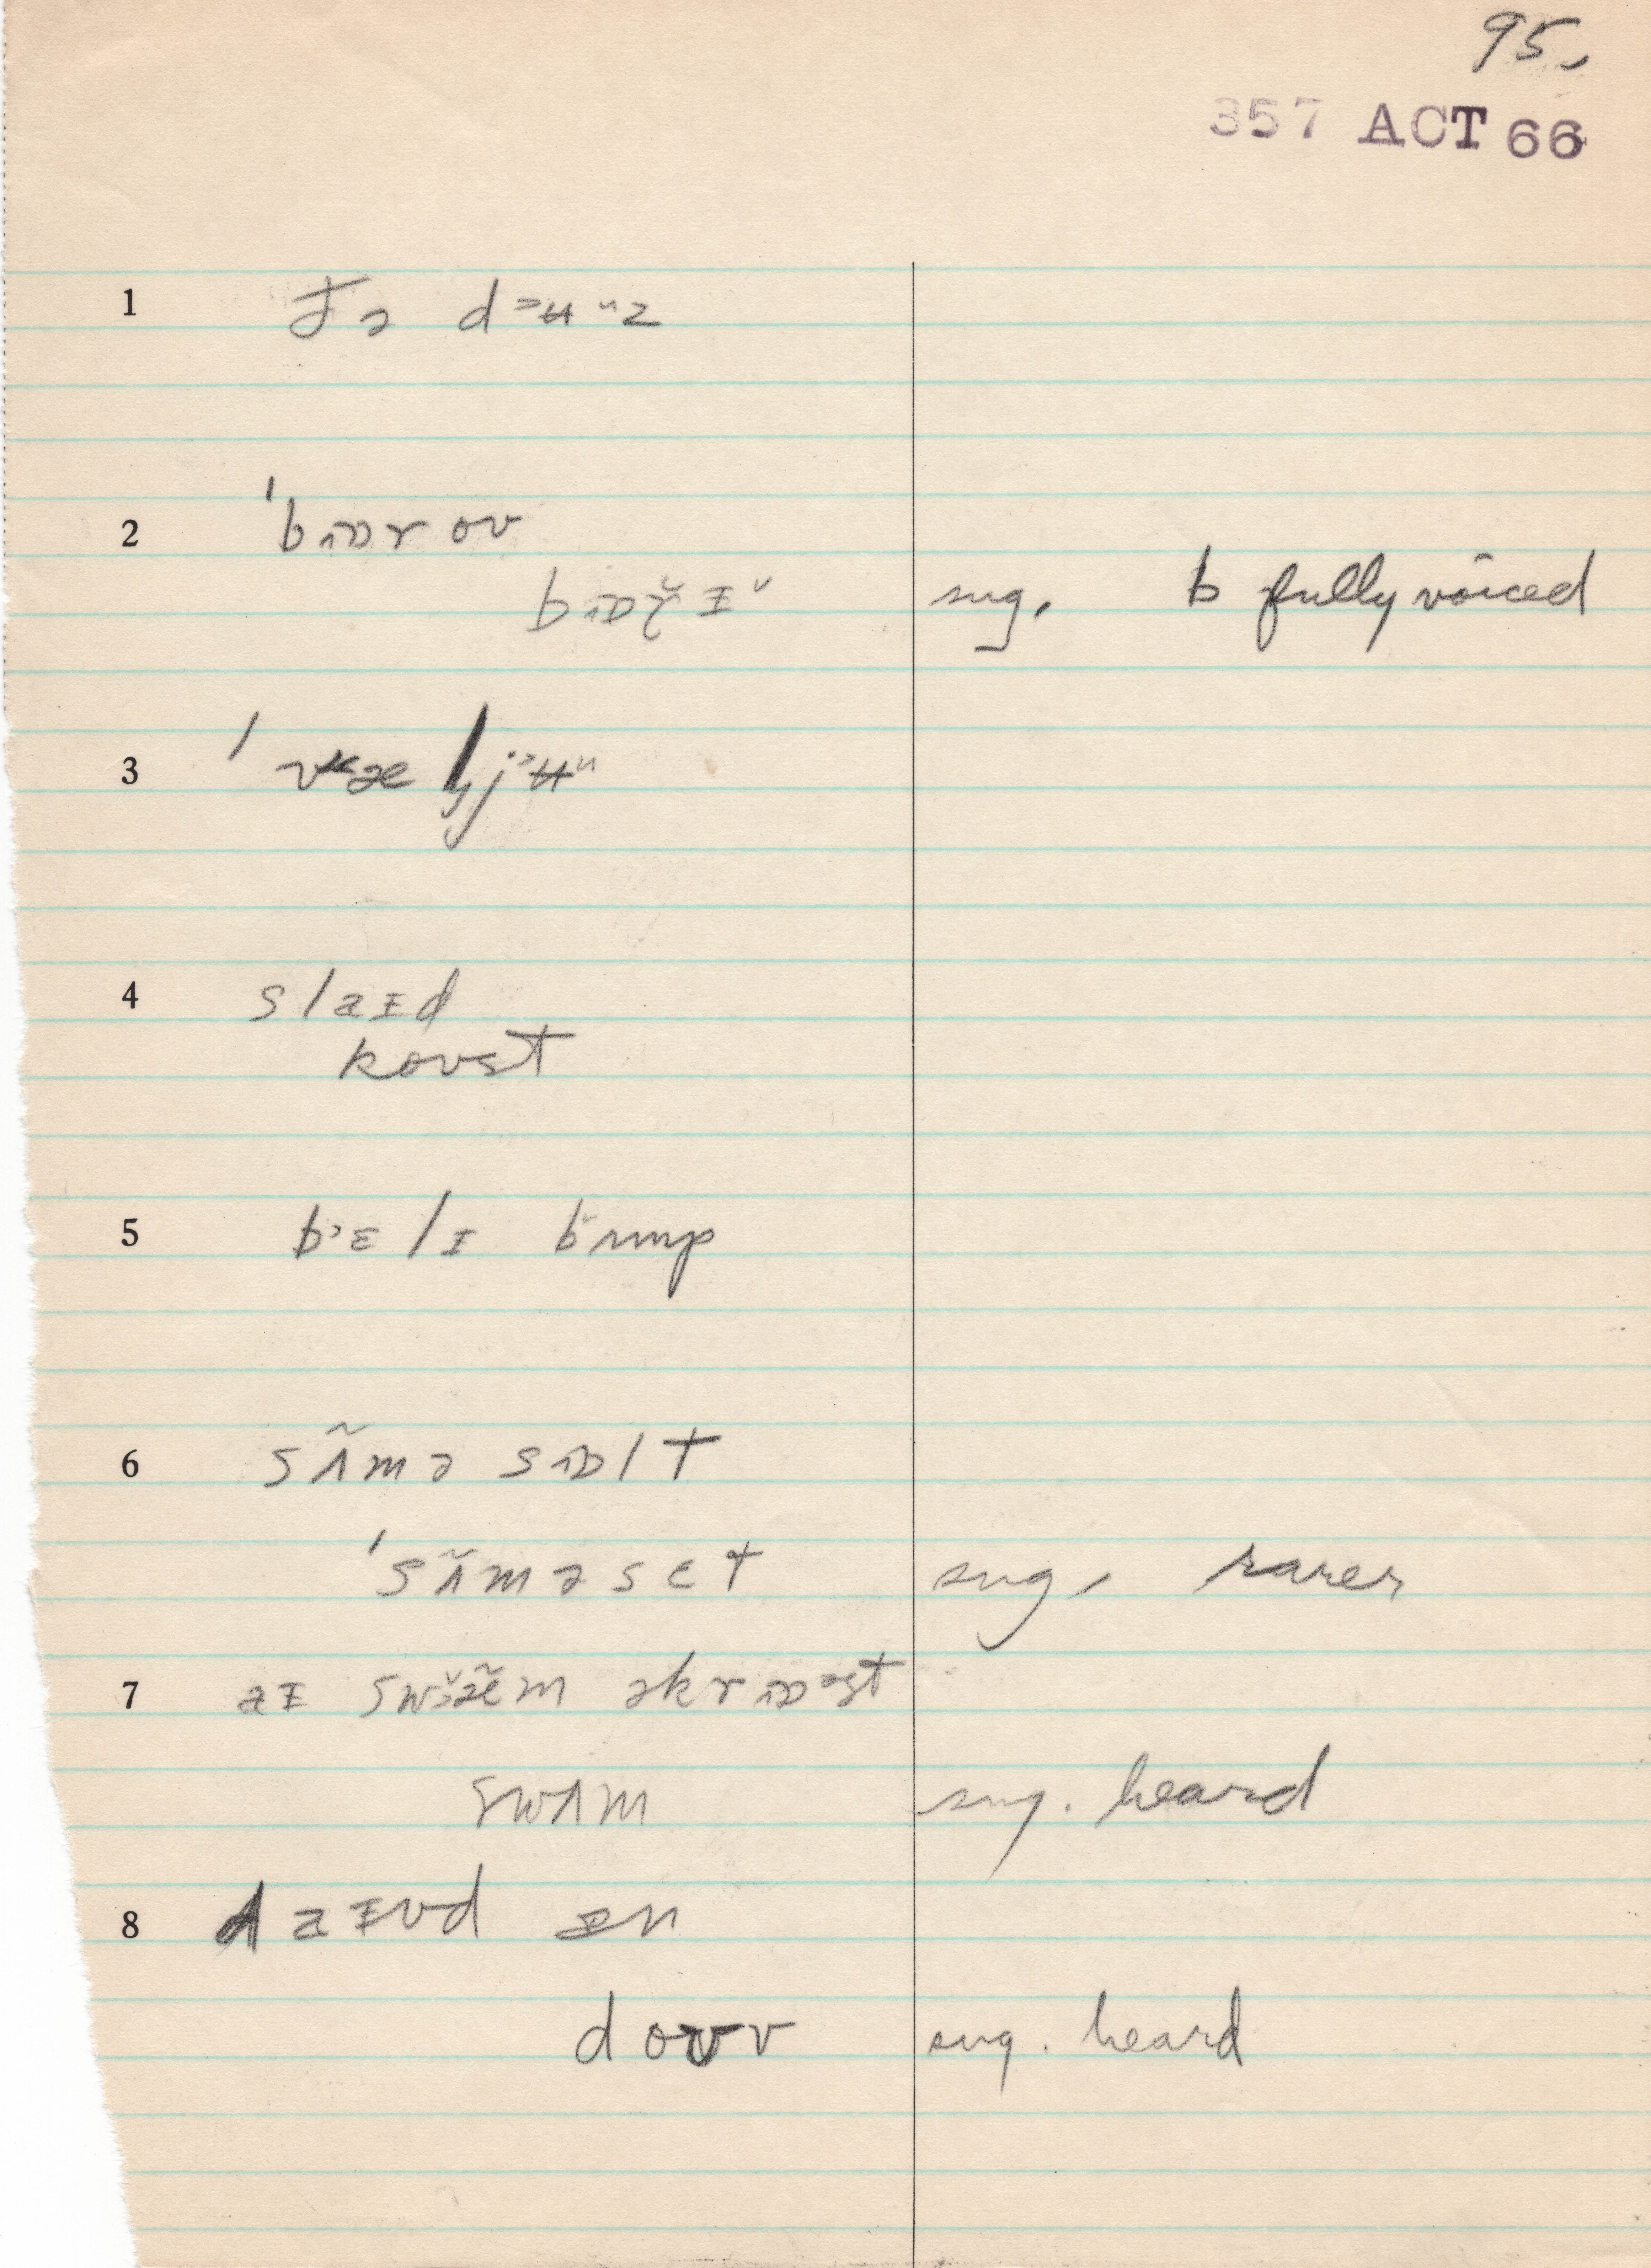 95.
357 ACT 66
1 ɟə d˃ʉᵘz
2 ˈbɒroʊ
bɒr̆ɪ̆ sug. b fully voiced
3 ˈvælj˃ʉᵘ
4 slaɪd
koʊst
5 b˃ɛlɪ bʌmp
6 sʌ̃mə sɒlt
ˈsʌ̃məsɛt sug, rarer
7 aɪ swæ̃m əkrɒᵊst
swʌm sug. heard
8 daɪvd ɪn
doʊv sug. heard